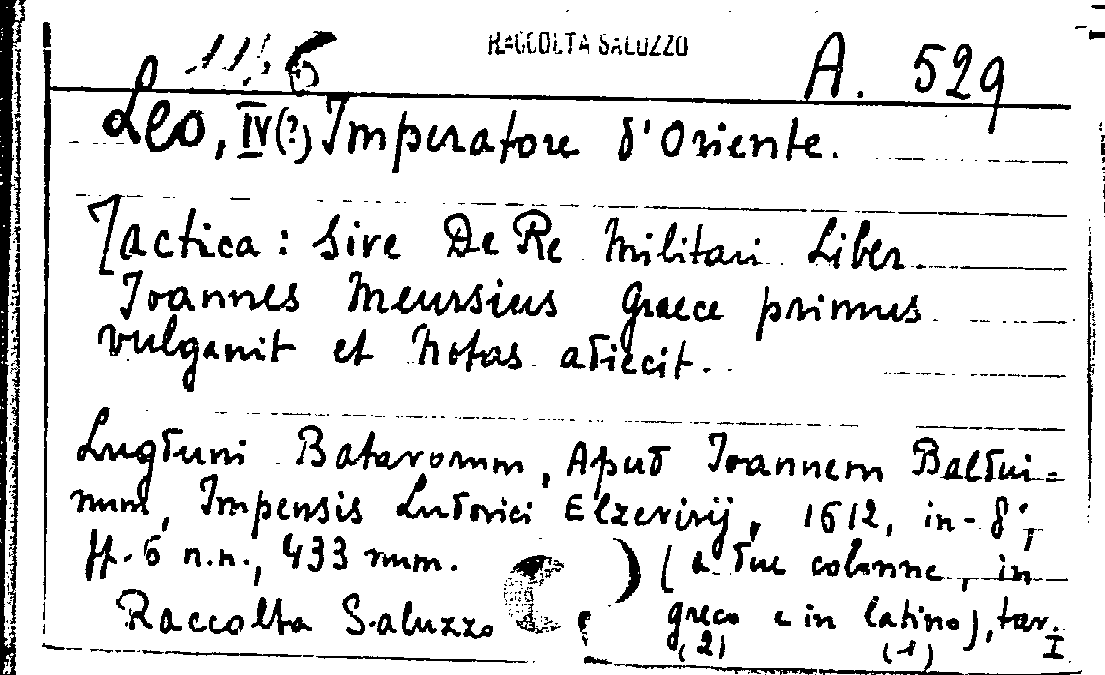 RACCOLTA SALUZZO
1116 A. 529
Leo, IV(?) Imperatore d'Oriente.
Tactica: sive De Re Militari Liber.
Ioannes Meursius Graece primus
vulgavit et Notas adiecit.
Lugduni Batavorum, Apud Ioannem Baldui=
num, Impensis Ludovici Elzevirij, 1612, in-8°;
ff. 6 n.n., 433 num. (a due colonne, in
Raccolta Saluzzo greco e in latino), tav.
(2) (1) I